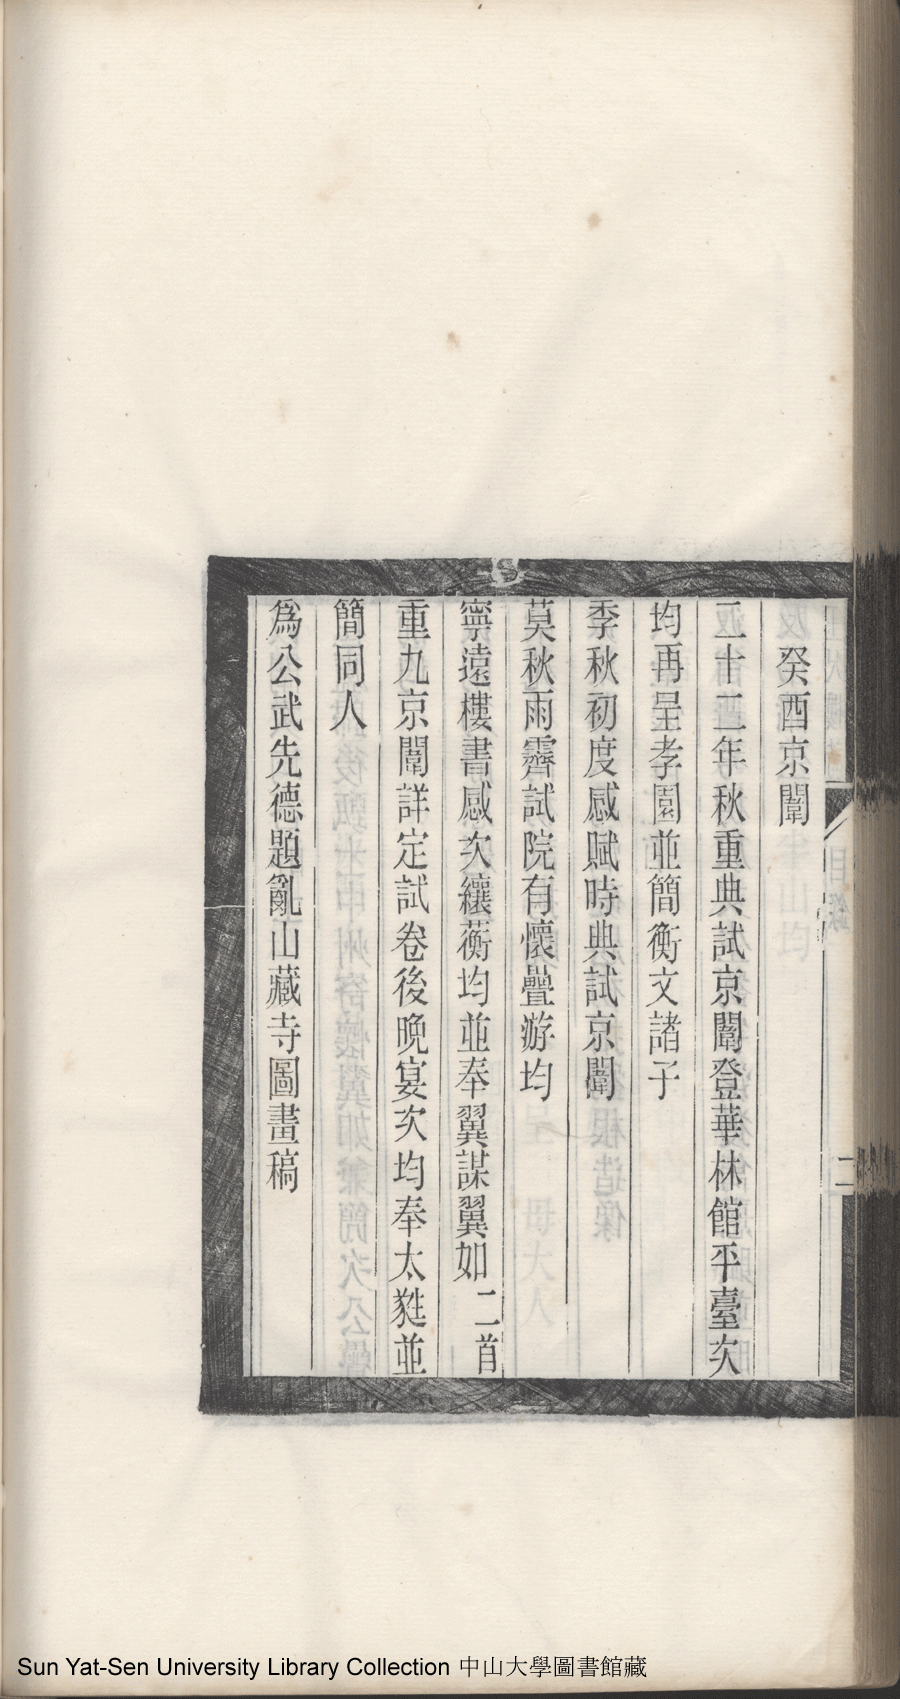 癸酉京闈
二十二年秋重典試京闈登華林館平臺次
均再呈孝園並簡衡文諸子
季秋初度感賦時典試京闈
莫秋雨霽試院有懷疊游均
寧遠樓書感次纕蘅均並奉翼謀翼如二首
重九京闈詳定試卷後晚宴次均奉太蕤並
簡同人
爲公武先德題亂山藏寺圖畫稿
目錄
二
Sun Yat-Sen University Library Collection 中山大學圖書館藏